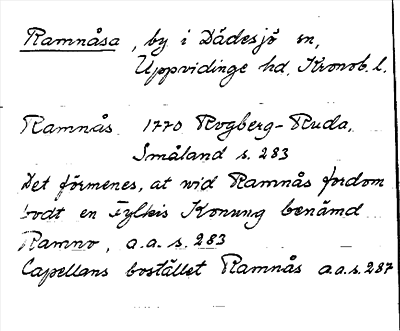 Ramnåsa, by i Dädesjö sn,
Uppvidinge hd, Kronob. l.
Ramnås. 1770 Rogberg-Ruda,
Småland s. 283
Det förmenes, at wid Ramnås fordom
bodt en Fylkis Konung benämd
Ramno, a.a.s. 283
Capellans bostället Ramnås a.a.s. 287